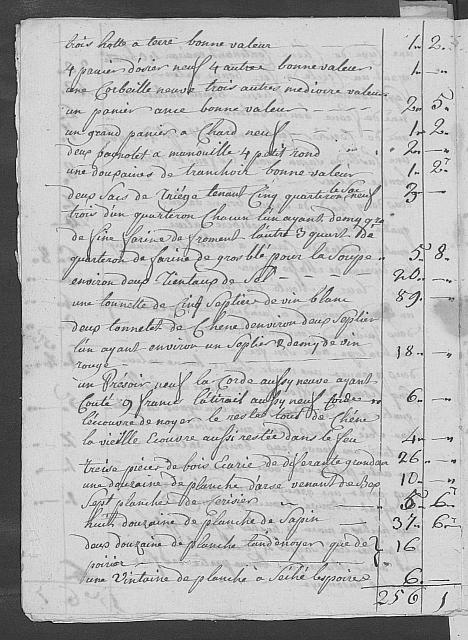 trois hotte a terre bonne valeur 1 " 2 "
4 panier d'osier neuf 4 autre bonne valeur 1 " — "
une Corbeille neuve trois autres mediocre valeur
un panier ance bonne valeur 2 " 5 "
un grand panier a Chard neuf 1 " 2 "
deux bagnolet a 4 petit rond 2 " — "
une douzaine de tranchoir bonne valeur 1 " 2 "
deux Sacs de Triége tenant Cinq quarteron le Sac neuf 3 —
trois d'un quarteron Chacun l'un ayant demy
de fine farine de froment l'autre 3 quart De
quarteron de farine de gros blé pour la Soupe " 5 " 8 "
environ deux de Sel 20 " — "
une tonnette de Cinq Septier de vin blanc 89 " — "
deux tonnelet de Chene d'environ deux Septier
l'un ayant environ un Septier & demy de vin
rouge 18 " — "
un Presoir neuf la Corde aussy neuve ayant
Couté 9 francs aussy neuf 6 " — "
l'écouvre de noyer le reste tout de Chéne
la vieille Ecouvre aussi restée dans le feu 4 " — "
treise pieces de bois Ecarie de diferante grandeur 26 " — "
une douzaine de planche d'arse venant de Bex 10 " — "
Sept planches de Cerisier " 5 " 6 "
huitt douzaine de planche de Sapin 37 " 6 "
deux douzaine de planche tand noyer que de
poirier 16
une Vintaine de planche à 6 " —
256 1